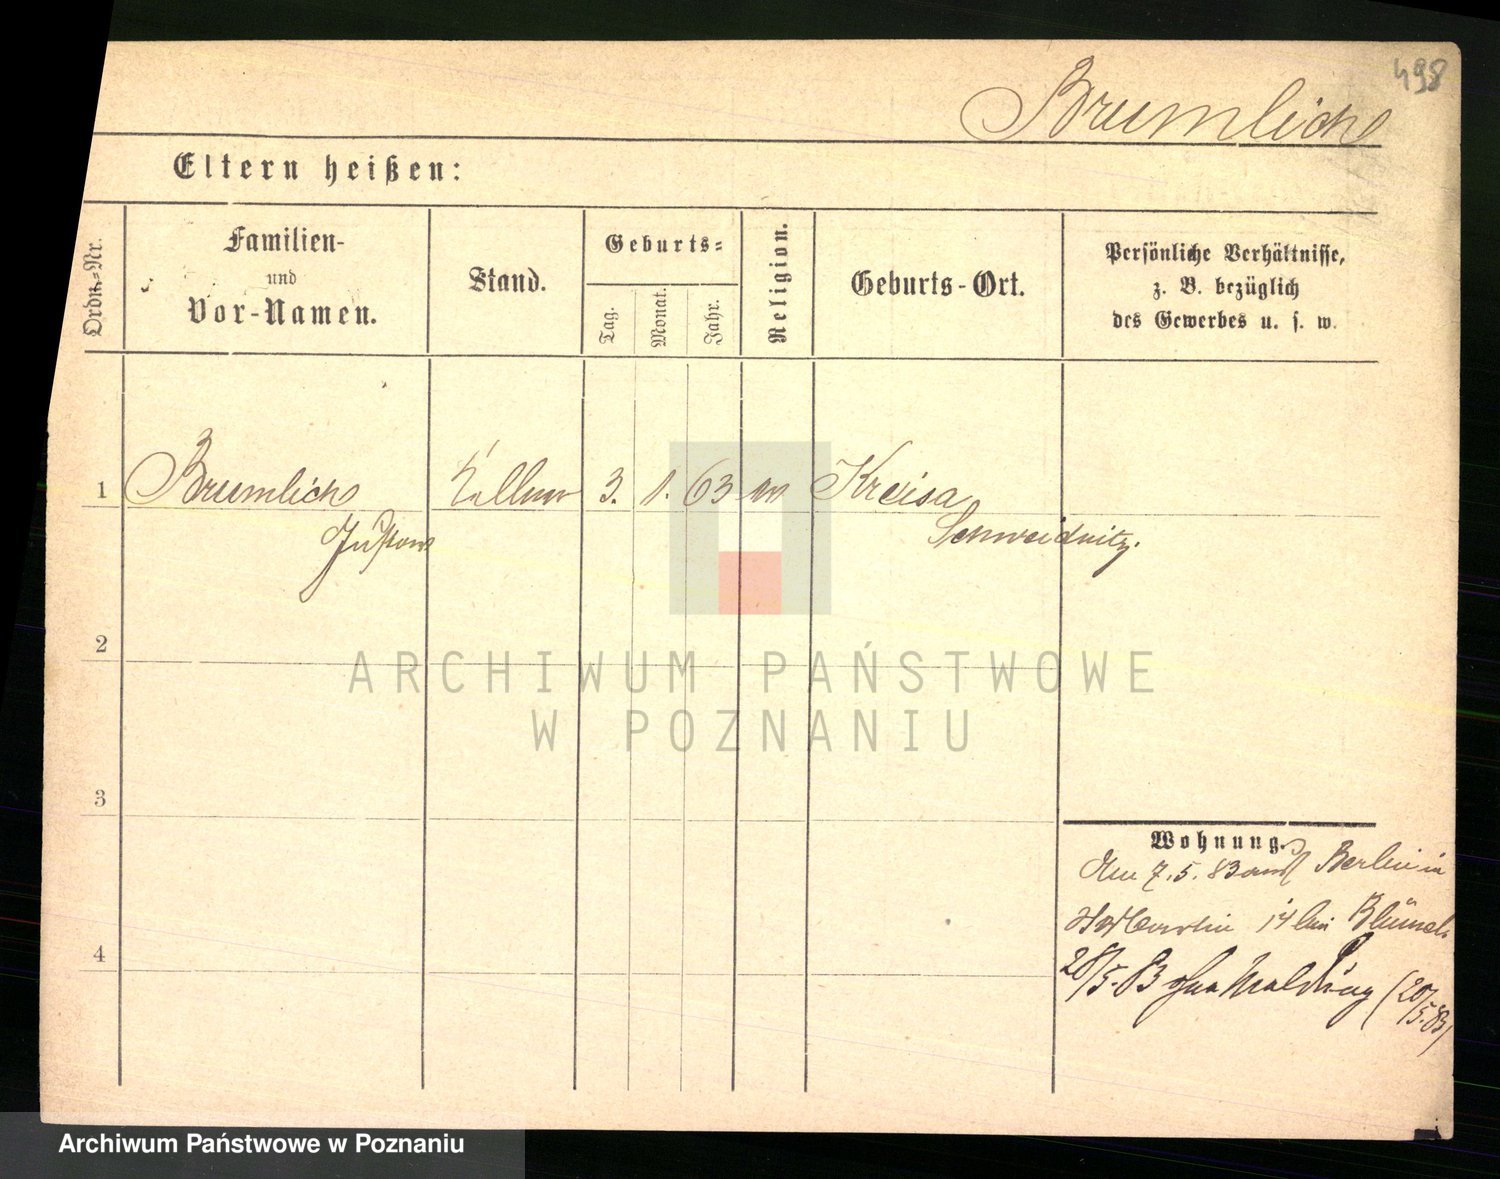 498
Brumlich
Eltern heißen:
Ordn.-Nr.
Familien-
und
Vor-Namen.
Stand.
Geburts-
Tag.
Monat.
Jahr.
Religion.
Geburts-Ort.
Persönliche Verhältnisse,
z. B. bezüglich
des Gewerbes u. s. w.
1 Brumlich Kellner 3. 1. 63 ev Kreisa
Gustav Schweidnitz.
2
3
4
Wohnung.
Am 7.5.83 aus Berlin in
St Martin 14 bei Blümel
28/5.83 ohne Meldung (20/5.83)
ARCHIWUM PAŃSTWOWE
W POZNANIU
Archiwum Państwowe w Poznaniu